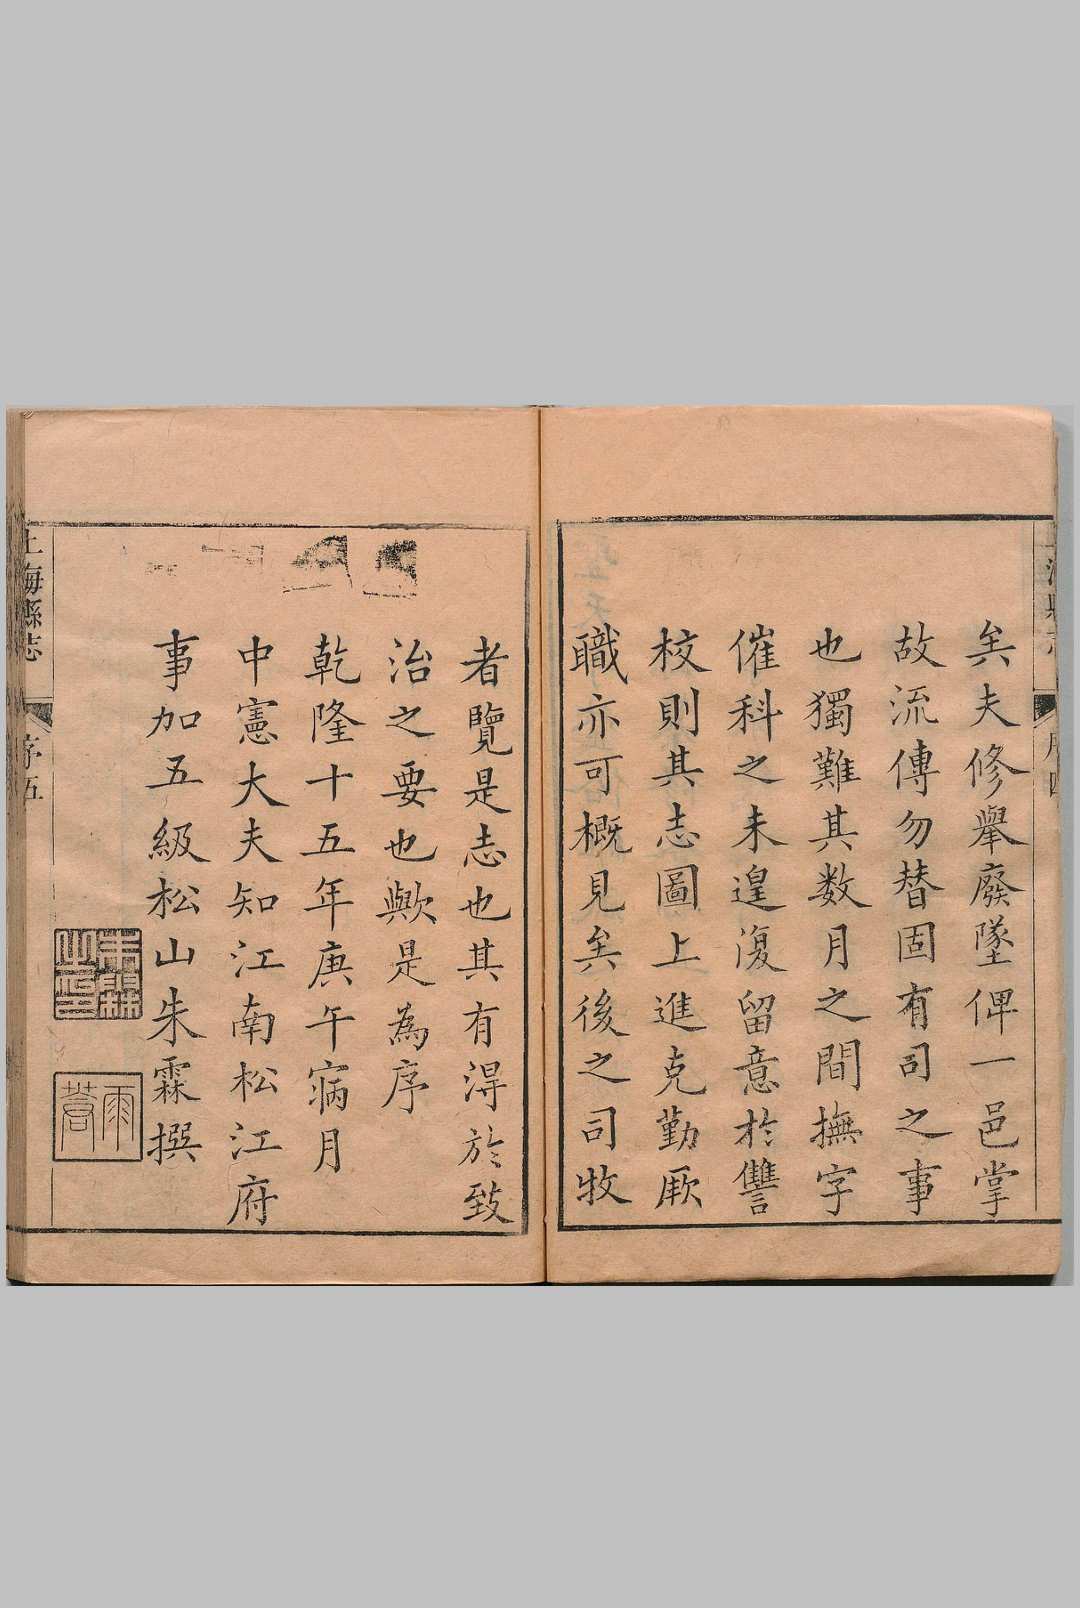 上海縣志
序四
矣夫修舉廢墜俾一邑掌
故流傳勿替固有司之事
也獨難其数月之間撫字
催科之未遑復留意於讐
校則其志圖上進克勤厥
職亦可概見矣後之司牧
者覽是志也其有淂於致
治之要也歟是為序
乾隆十五年庚午寎月
中憲大夫知江南松江府
事加五級松山朱霖撰
朱霖之印
雨蒼
上海縣志
序五